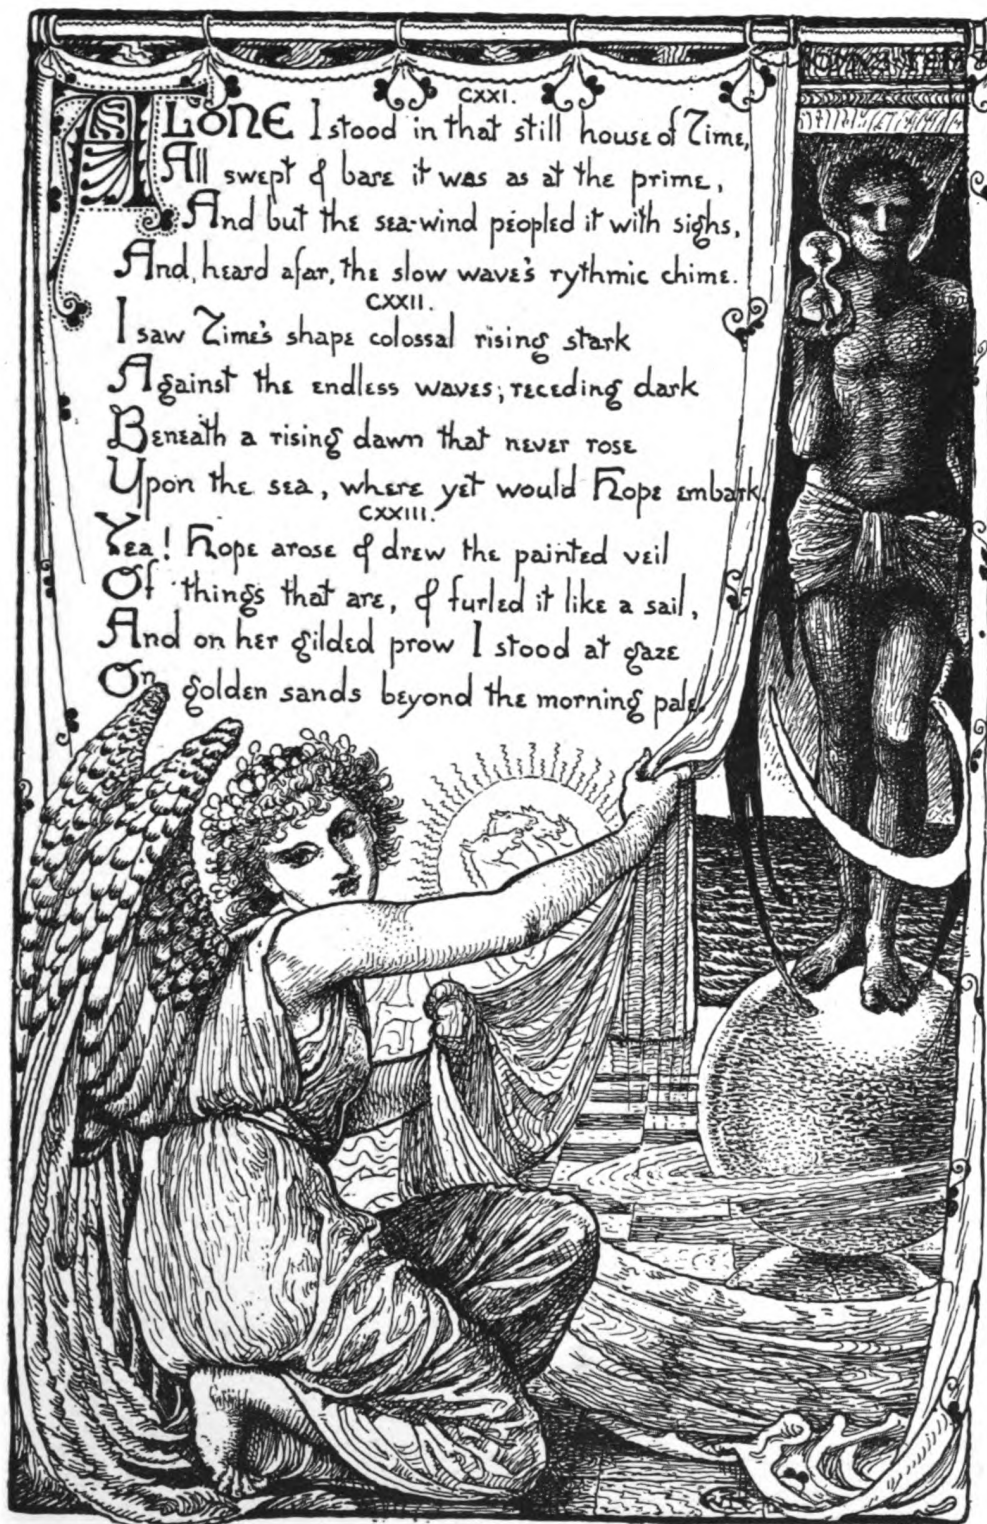 CXXI.
ALONE I stood in that still house of Time,
All swept & bare it was as at the prime,
And but the sea-wind peopled it with sighs,
And, heard afar, the slow wave's rythmic chime.
CXXII.
I saw Time's shape colossal rising stark
Against the endless waves; receding dark
Beneath a rising dawn that never rose
Upon the sea, where yet would Hope embark.
CXXIII.
Yea! Hope arose & drew the painted veil
Of things that are, & furled it like a sail,
And on her gilded prow I stood at gaze
On golden sands beyond the morning pale.